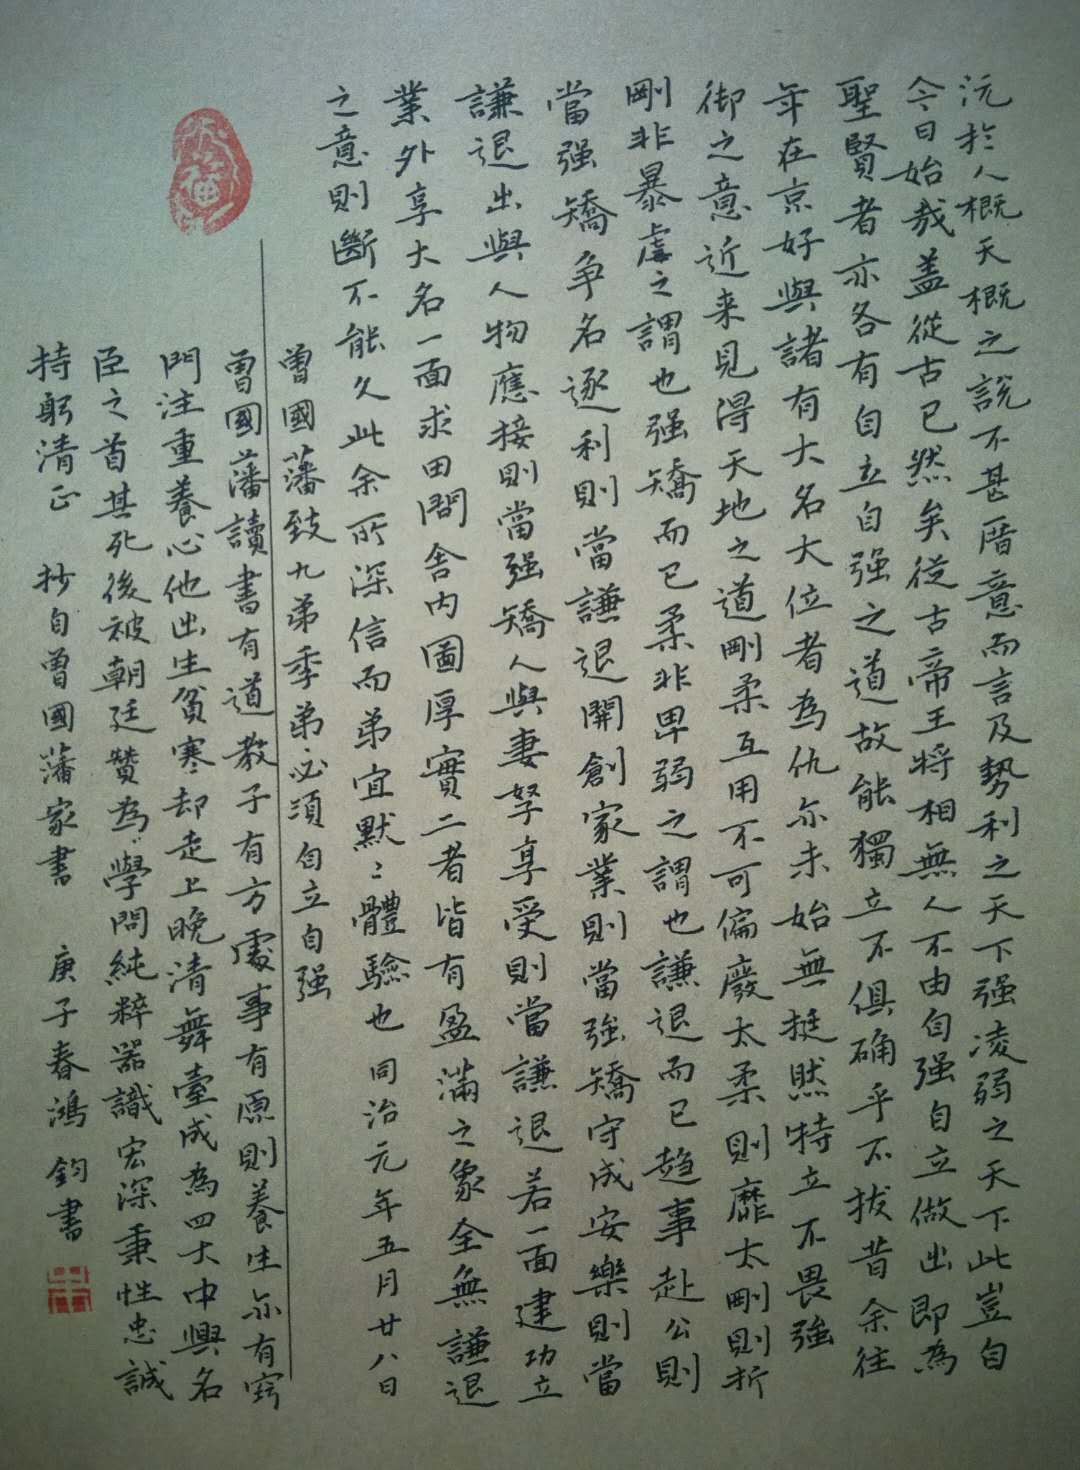 沅於人概天概之說不甚厝意而言及勢利之天下强凌弱之天下此豈自
今日始哉盖從古已然矣從古帝王將相無人不由自强自立做出即為
聖賢者亦各有自立自强之道故能獨立不俱确乎不拔昔余往
年在京好與諸有大名大位者為仇亦未始無挺然特立不畏強
御之意近来見得天地之道剛柔互用不可偏廢太柔則靡太剛則折
剛非暴虐之謂也强矯而已柔非卑弱之謂也謙退而已趋事赴公則
當强矯争名逐利則當謙退開創家業則當強矯守成安樂則當
謙退出與人物應接則當强矯人與妻孥享受則當謙退若一面建功立
業外享大名一面求田問舍内圖厚實二者皆有盈滿之象全無謙退
之意則斷不能久此余所深信而弟宜默々體驗也 同治元年五月廿八日
曾國藩致九弟季弟必須自立自强
曾國藩讀書有道教子有方處事有原則養生亦有竅
門注重養心他出生貧寒却走上晚清舞臺成為四大中興名
臣之首其死後被朝廷贊為"學問純粹器識宏深秉性忠誠
持躬清正 抄自曾國藩家書 庚子春鴻鈞書